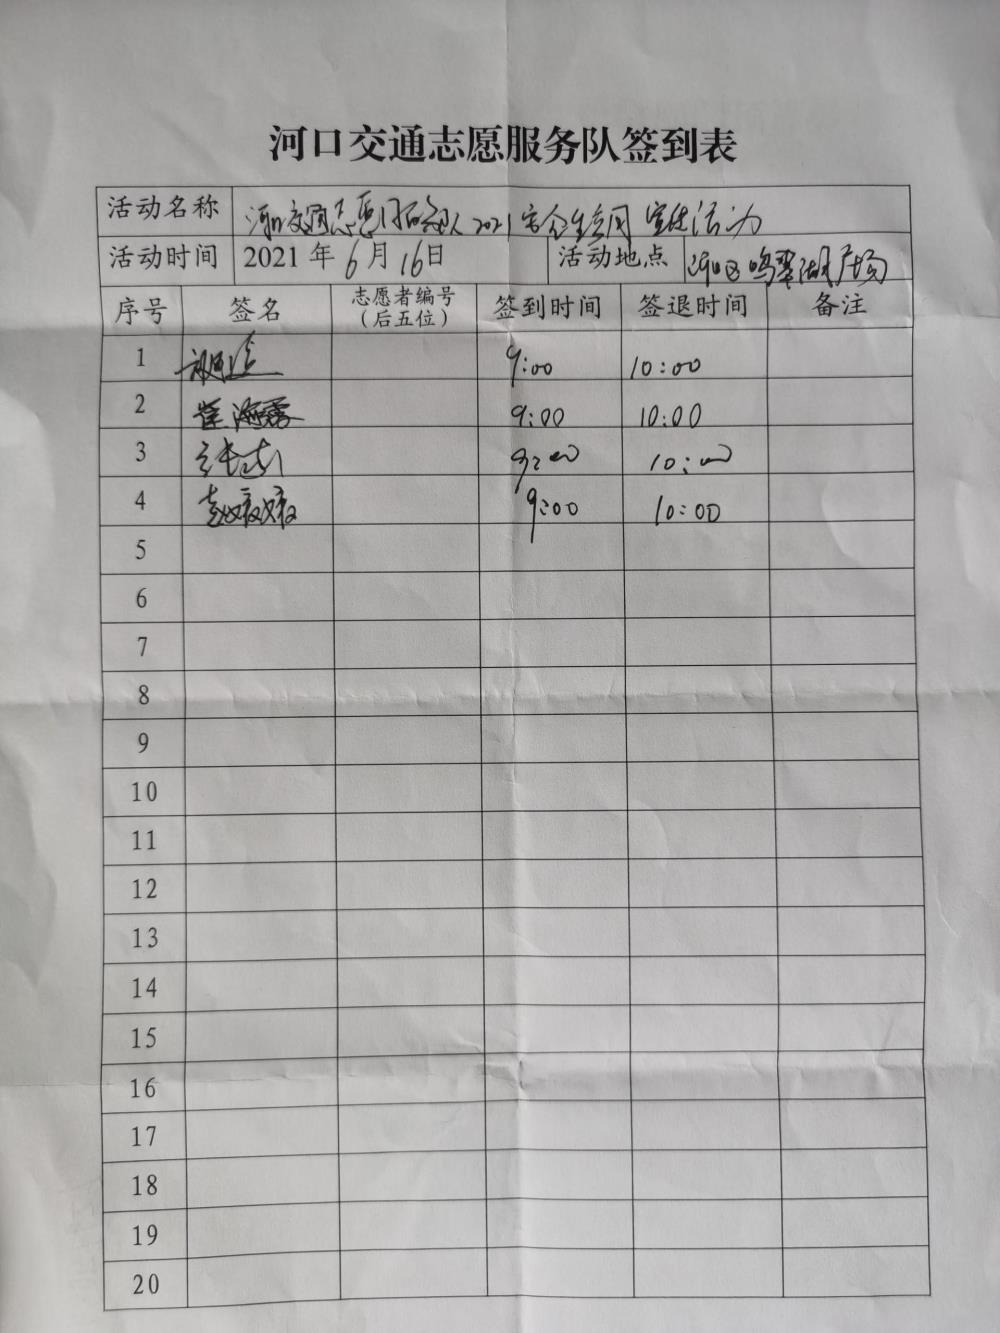 河口交通志愿服务队签到表
活动名称 河口交通志愿服务队2021安全生产月宣传活动
活动时间 2021年6月16日 活动地点 河口区鸣翠湖广场
序号 签名 志愿者编号（后五位） 签到时间 签退时间 备注
1 9:00 10:00
2 崔海霞 9:00 10:00
3 9:00 10:00
4 赵媛媛 9:00 10:00
5
6
7
8
9
10
11
12
13
14
15
16
17
18
19
20